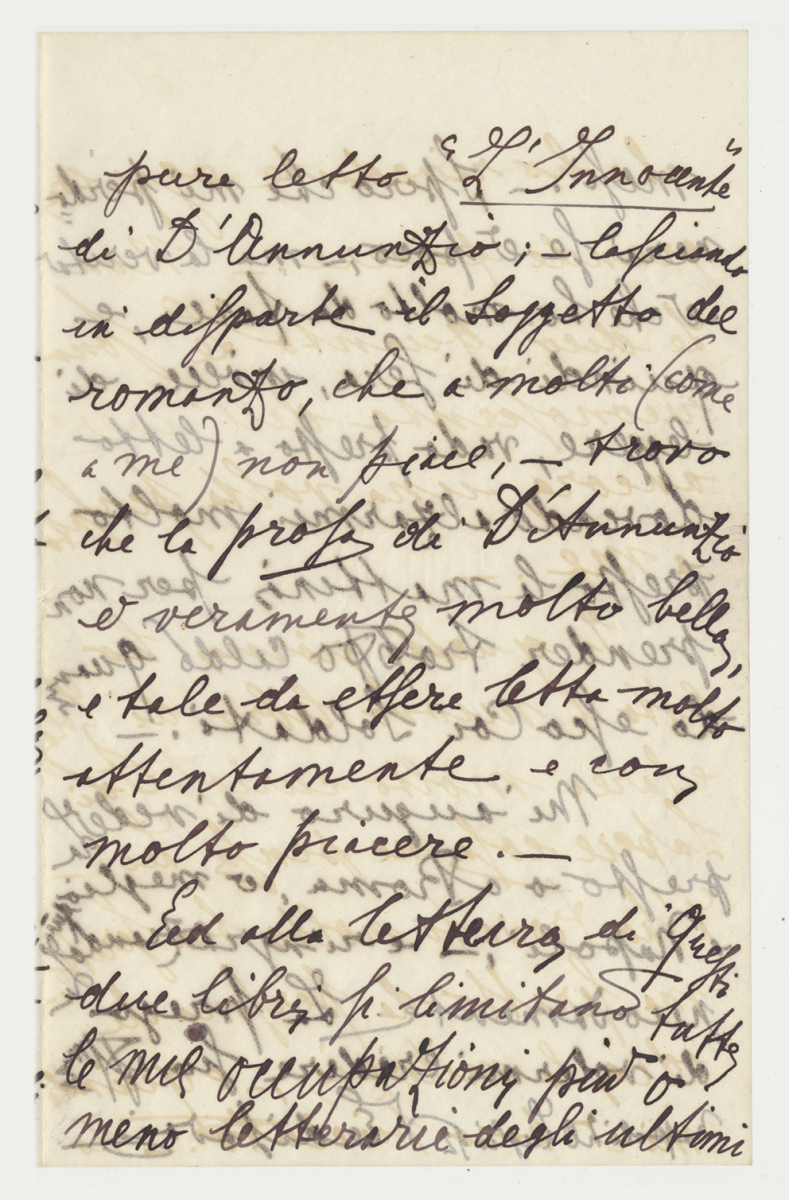 pure letto "L'Innocente"
di D'Annunzio; – lasciando
in disparte il soggetto del
romanzo, che a molti (come
a me) non piace, – trovo
che la prosa di D'Annunzio
è veramente molto bella,
e tale da essere letta molto
attentamente e con
molto piacere. –
Ed alla lettura di questi
due libri si limitano tutte
le mie occupazioni più o
meno letterarie degli ultimi